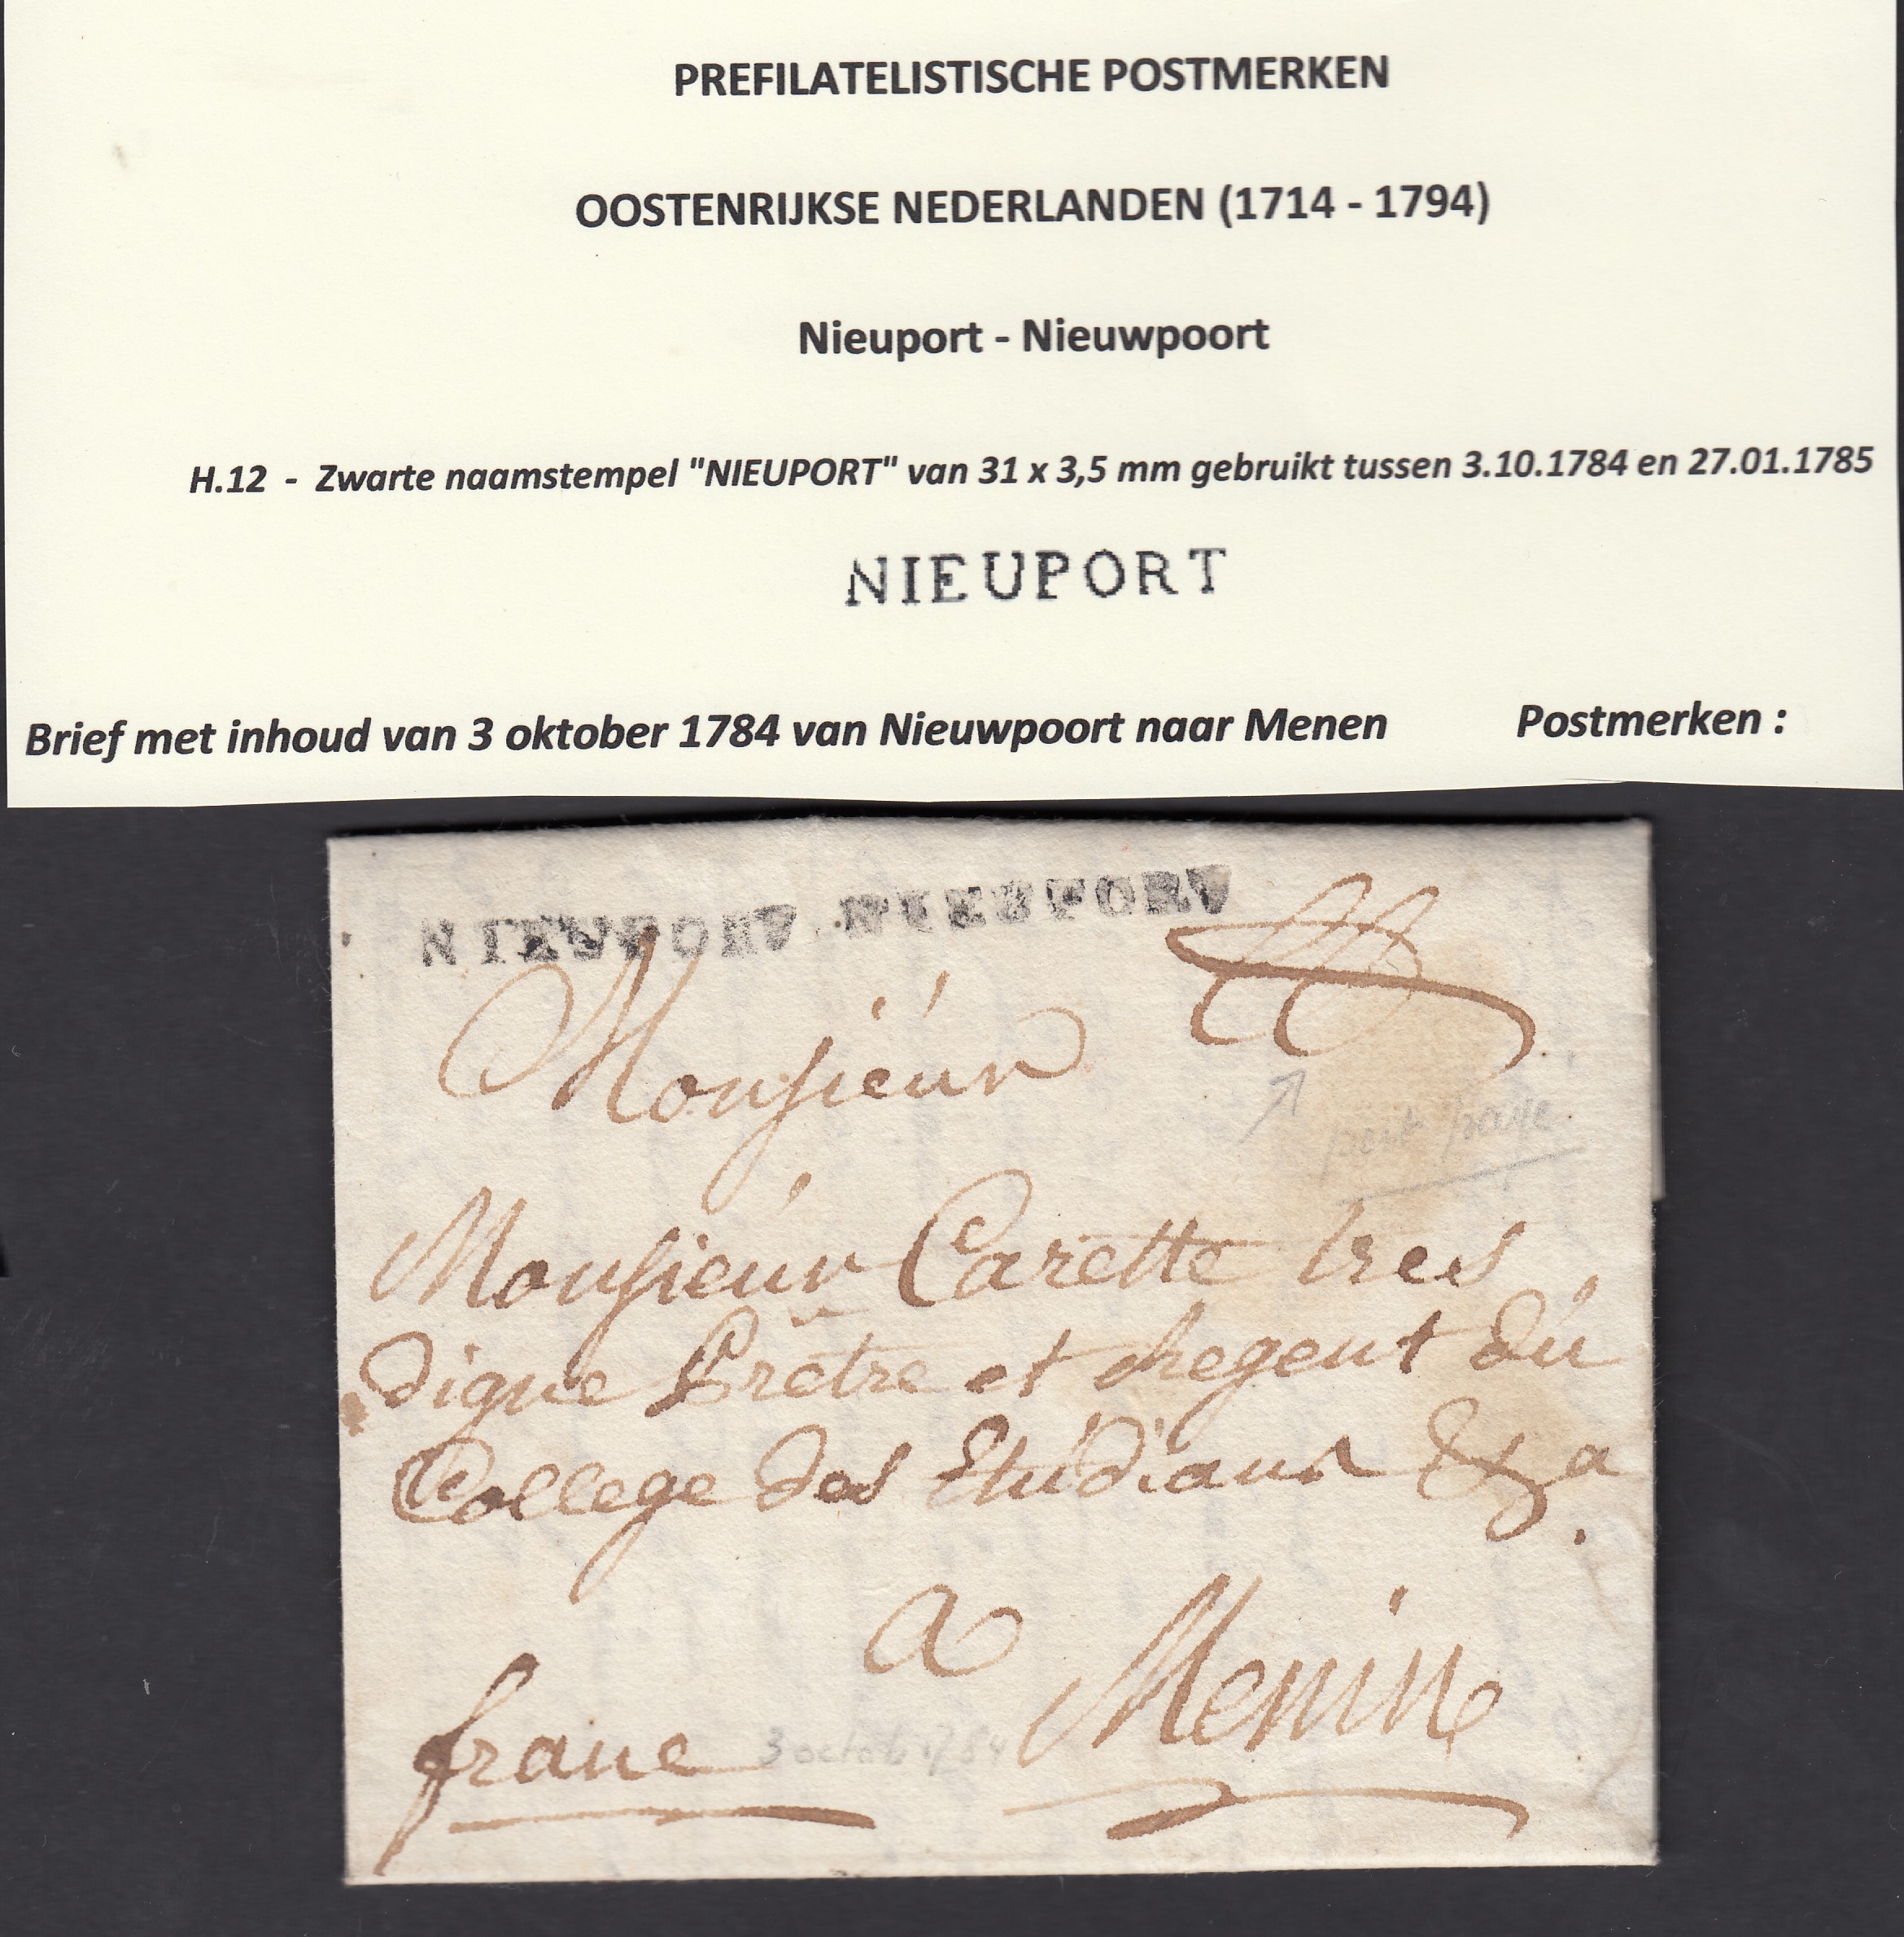 PREFILATELISTISCHE POSTMERKEN
OOSTENRIJKSE NEDERLANDEN (1714 - 1794)
Nieuport - Nieuwpoort
H.12 - Zwarte naamstempel "NIEUPORT" van 31 x 3,5 mm gebruikt tussen 3.10.1784 en 27.01.1785
NIEUPORT
Brief met inhoud van 3 oktober 1784 van Nieuwpoort naar Menen Postmerken :
NIEUPORT NIEUPORT
Monsieur
port paye
Monsieur Carette tres
digne Prêtre et Regent du
College des Etudians &a
a Menin
franc 3 octob 1784